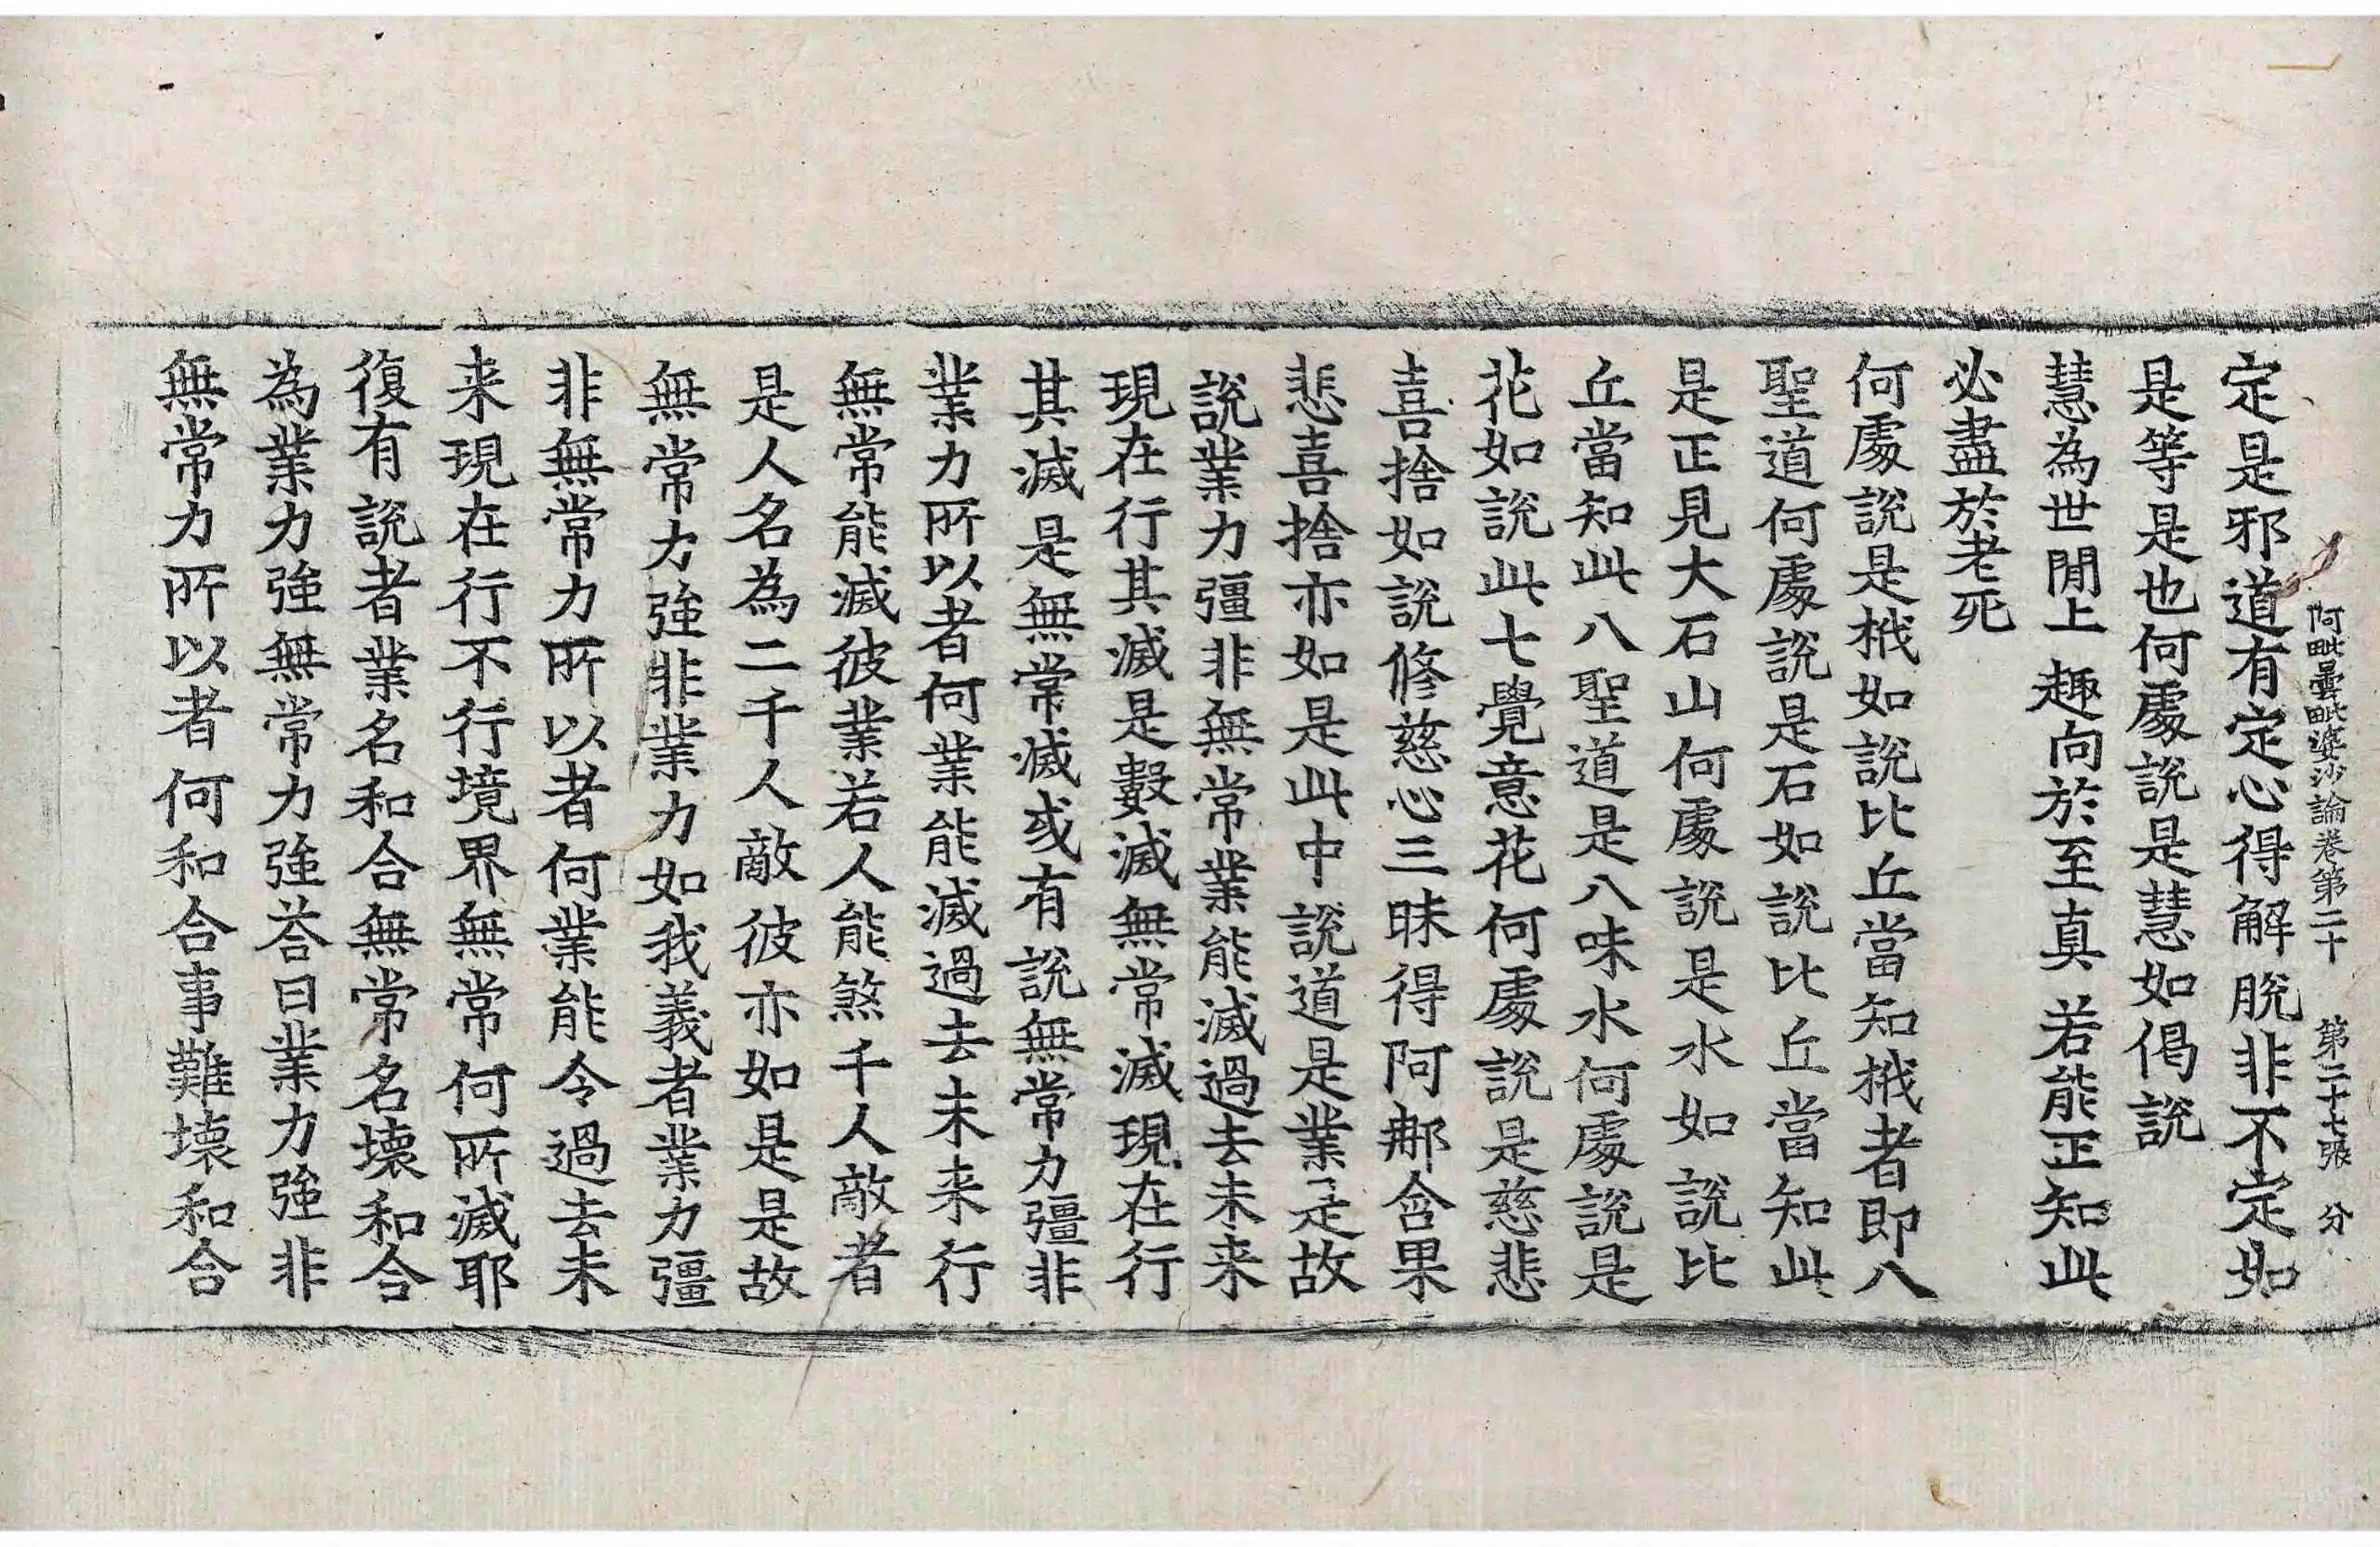 阿毗曇毗婆沙論卷第二十　第二十七張　分
定是邪道有定心得解脫非不定如
是等是也何處說是慧如偈說
慧為世間上　趣向於至真　若能正知此
必盡於老死
何處說是栰如說比丘當知栰者即八
聖道何處說是石如說比丘當知此
是正見大石山何處說是水如說比
丘當知此八聖道是八味水何處說是
花如說此七覺意花何處說是慈悲
喜捨如說修慈心三昧得阿那含果
悲喜捨亦如是此中說道是業是故
說業力彊非無常業能滅過去未来
現在行其滅是數滅無常滅現在行
其滅是無常滅或有說無常力彊非
業力所以者何業能滅過去未来行
無常能滅彼業若人能煞千人敵者
是人名為二千人敵彼亦如是是故
無常力強非業力如我義者業力彊
非無常力所以者何業能令過去未
来現在行不行境界無常何所滅耶
復有說者業名和合無常名壞和合
為業力強無常力強荅曰業力強非
無常力所以者何和合事難壞和合